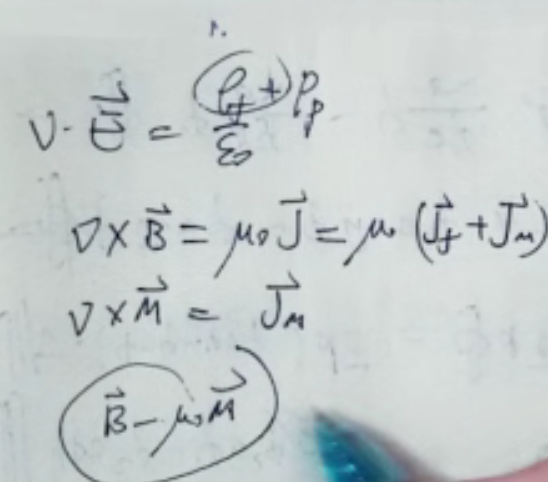 ∇·E⃗ = (ρ_f + ρ_p)/ε₀
∇×B⃗ = μ₀J⃗ = μ₀(J⃗_f + J⃗_M)
∇×M⃗ = J⃗_M
B⃗ − μ₀M⃗